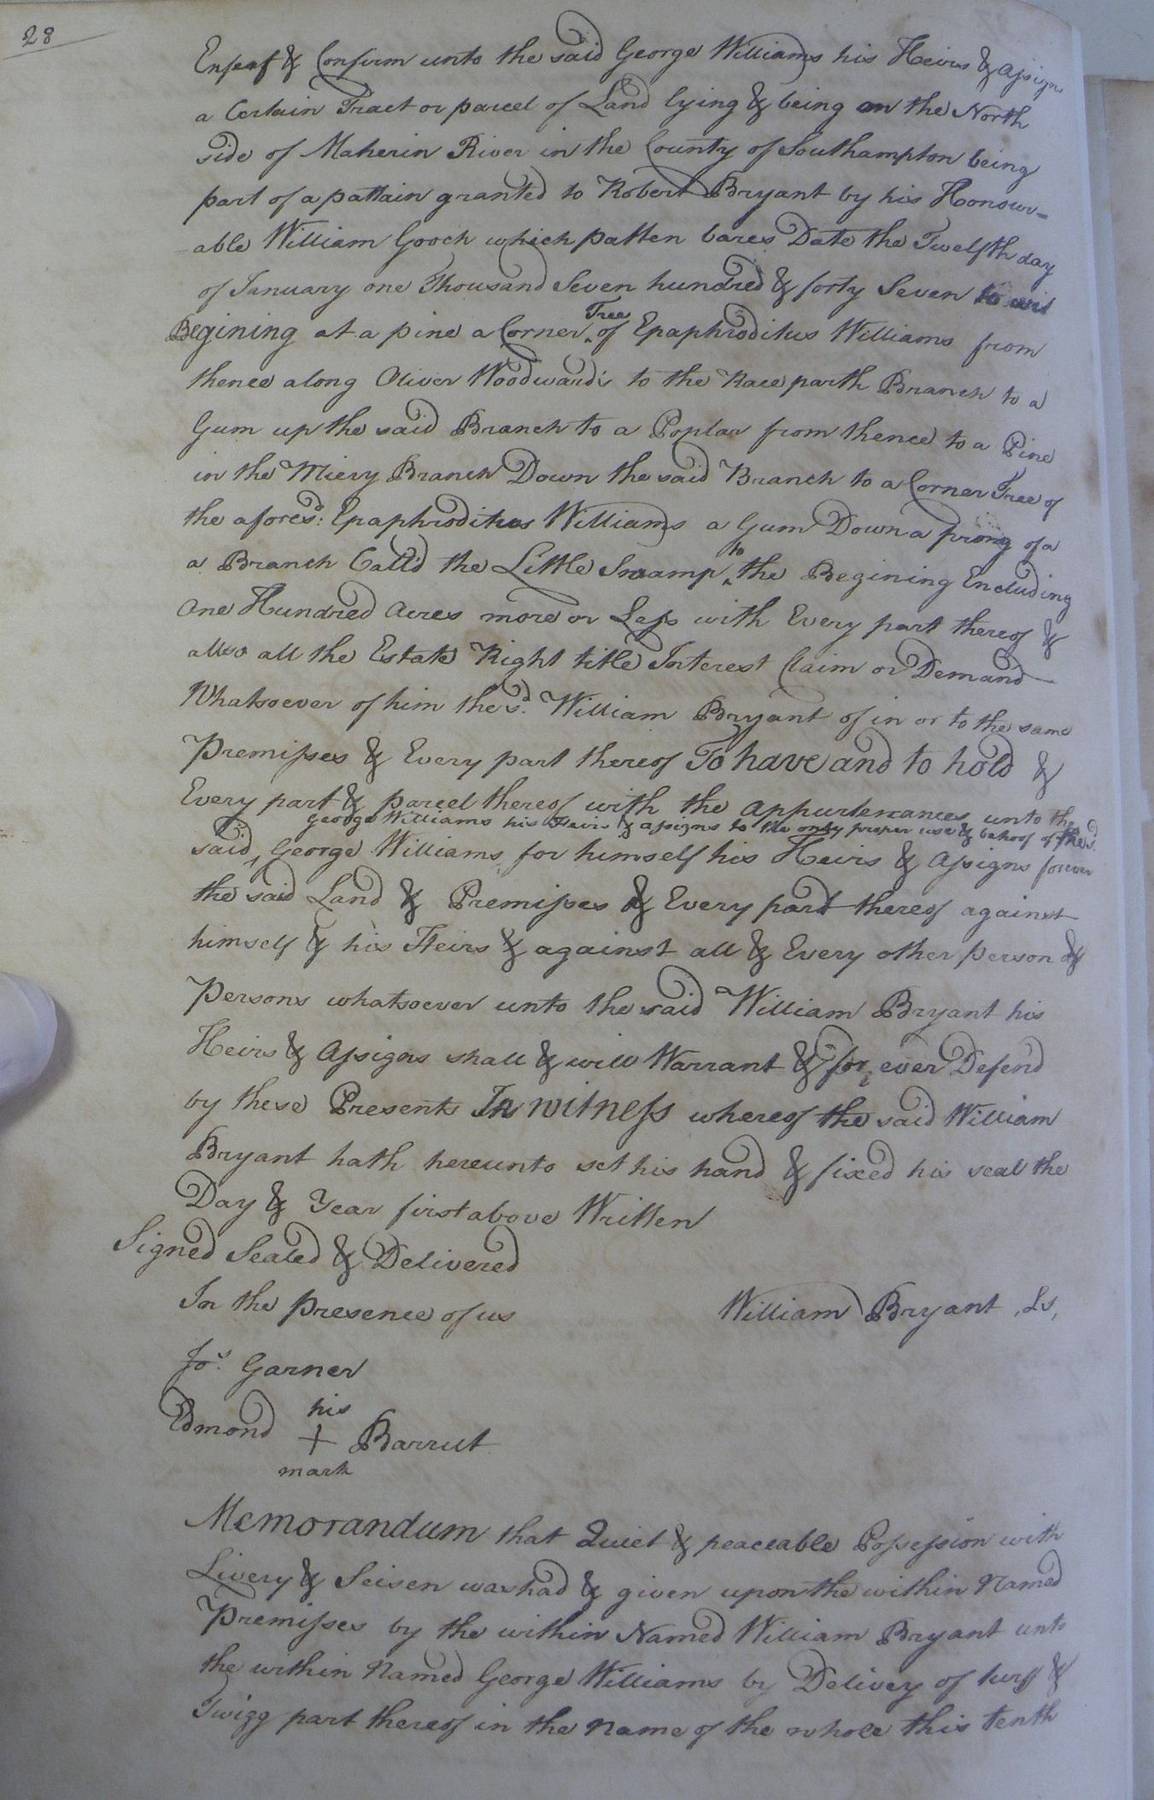 28
Enfeaf & Confirm unto the said George Williams his Heirs & Assigns
a Certain Tract or parcel of Land lying & being on the North
side of Maherin River in the County of Southampton being
part of a pattain granted to Robert Bryant by his Honour=
able William Gooch which patten bares Date the Twelfth day
of January one Thousand Seven hundred & forty Seven to wit
Begining at a pine a Corner Tree of Epaphroditus Williams from
thence along Oliver Woodward's to the Race parth Branch to a
Gum up the said Branch to a Poplar from thence to a Pine
in the Miery Branch Down the said Branch to a Corner Tree of
the afores.d: Epaphroditus Williams a Gum Down a prong of a
a Branch Call'd the Little Swamp to the Begining Encluding
One Hundred Acres more or Less with Every part thereof &
allso all the Estate Right title Interest Claim or Demand
Whatsoever of him the s.d William Bryant of in or to the same
Premisses & Every part thereof To have and to hold &
Every part & parcel thereof with the appurtenances unto the
George Williams his Heirs & assigns to the only proper use & behoof of the s.d
said George Williams for himself his Heirs & Assigns forever
the said Land & Premisses & Every part thereof against
himself & his Heirs & against all & Every other person &
Persons whatsoever unto the said William Bryant his
Heirs & Assigns shall & will Warrant & for ever Defend
by these Presents In witness whereof the said William
Bryant hath hereunto set his hand & fixed his seal the
Day & Year first above Written
Signed Sealed & Delivered
In the Presence of us William Bryant Ls,
Jo.s Garner
his
Edmond + Barrut
mark
Memorandum that Quiet & peaceable Possession with
Livery & Seisen was had & given upon the within Named
Premisses by the within Named William Bryant unto
the within Named George Williams by Delivey of turff &
Twigg part thereof in the name of the whole this tenth